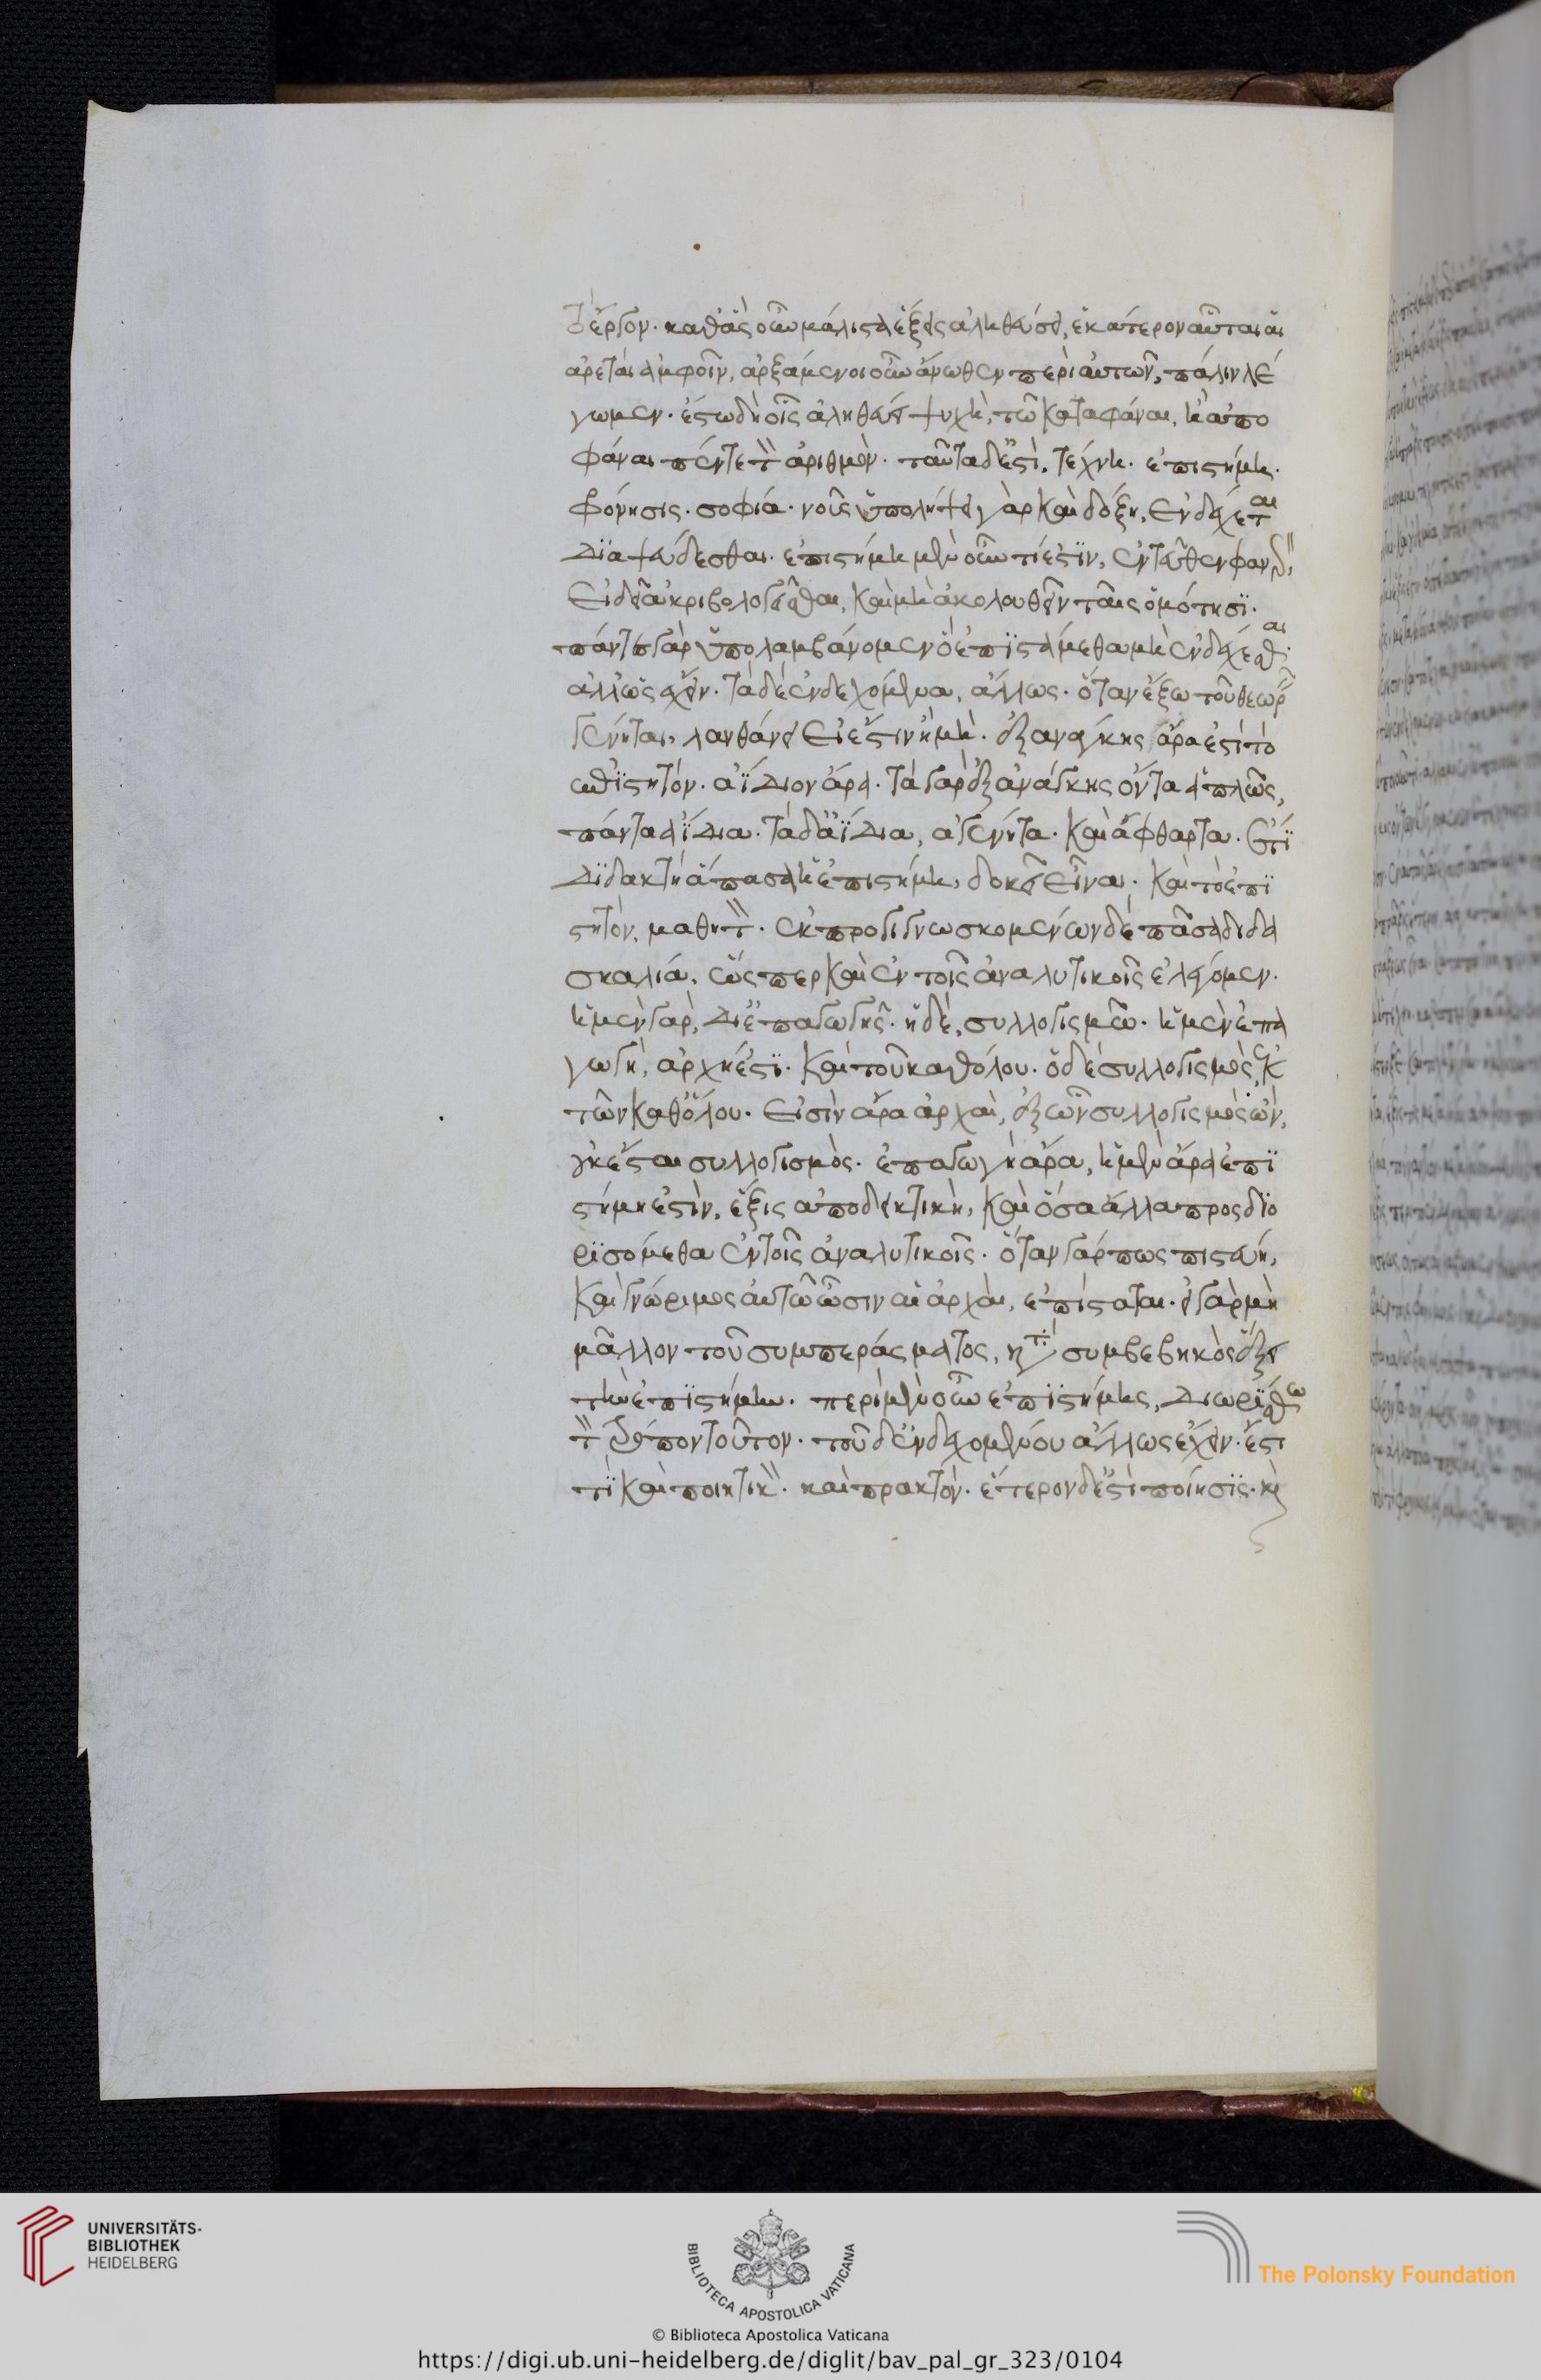 τὸ ἔργον. καθ' ἃς οὖν μάλιστα ἕξεις ἀληθεύσει, ἑκάτερον αὗται αἱ
ἀρεταὶ ἀμφοῖν, ἀρξάμενοι οὖν ἄνωθεν περὶ αὐτῶν, πάλιν λέ
γωμεν. ἔστω δὴ οἷς ἀληθεύει ψυχὴ, τῶ καταφάναι, ἢ ἀπο
φάναι πέντε τὸν ἀριθμὸν. ταῦτα δ' ἐστὶ. τέχνη. ἐπιστήμη.
φρόνησις. σοφία. νοῦς ὑπολήψει γὰρ καὶ δόξη, ἐνδέχεται
διαψεύδεσθαι. ἐπιστήμη μὲν οὖν τί ἐστϊν, ἐντεῦθεν φανερὸν,
εἰ δεῖ ἀκριβολογεῖσθαι, καὶ μὴ ἀκολουθεῖν ταῖς ὁμότησϊ.
πάντες γὰρ ὑπολαμβάνομεν ὃ ἐπϊστάμεθα μὴ ἐνδέχεσθαι.
ἄλλως ἔχειν. τὰ δὲ ἐνδεχόμενα, ἄλλως. ὅταν ἔξω τοῦ θεωρεῖν
γένηται, λανθάνει εἰ ἔστιν ἢ μὴ. ἐξ ἀνάγκης ἄρα ἐστὶ τὸ
ἐπϊστητόν. ἀΐδιον ἄρα. τὰ γὰρ ἐξ ἀνάγκης ὄντα ἁπλῶς,
πάντα ἀΐδια. τὰ δ' ἀΐδια, ἀγένητα. καὶ ἄφθαρτα. ἔτϊ
δϊδακτὴ ἅπασα ἡ ἐπιστήμη, δοκεῖ εἶναι. καὶ τὸ ἐπϊ
στητὸν, μαθητὸν. ἐκ προγιγνωσκομένων δὲ πᾶσα διδα
σκαλία, ὥσπερ καὶ ἐν τοῖς ἀναλυτικοῖς ἐλέγομεν.
ἡ μὲν γὰρ, δι' ἐπαγωγῆς. ἡ δὲ, συλλογισμῶ. ἡ μὲν ἐπα
γωγὴ, ἀρχή ἐστϊ. καὶ τοῦ καθόλου. ὁ δὲ συλλογισμὸς, ἐκ
τῶν καθόλου. εἰσὶν ἄρα ἀρχαὶ, ἐξ ὧν συλλογισμὸς, ὧν,
οὐκ ἔσται συλλογισμὸς. ἐπαγωγὴ ἄρα, ἡ μὲν ἄρα ἐπϊ
στήμη ἐστὶν, ἕξις ἀποδεικτικὴ, καὶ ὅσα ἄλλα προσδϊο
ρϊσόμεθα ἐν τοῖς ἀναλυτικοῖς. ὅταν γάρ πως πιστεύη,
καὶ γνώριμος αὐτῶ ὦσιν αἱ ἀρχαὶ, ἐπίσταται. εἰ γὰρ μὴ
μᾶλλον τοῦ συμπεράσματος, κατὰ συμβεβηκὸς ἕξει
τὴν ἐπϊστήμην. περὶ μὲν οὖν ἐπϊστήμης, διωρίσθω
τὸν τρόπον τοῦτον. τοῦ δ' ἐνδεχομένου ἄλλως ἔχειν. ἔστι
τϊ καὶ ποιητικὸν. καὶ πρακτόν. ἕτερον δ' ἐστὶ ποίησϊς. καὶ
UNIVERSITÄTS-
BIBLIOTHEK
HEIDELBERG
BIBLIOTECA APOSTOLICA VATICANA
The Polonsky Foundation
© Biblioteca Apostolica Vaticana
https://digi.ub.uni-heidelberg.de/diglit/bav_pal_gr_323/0104